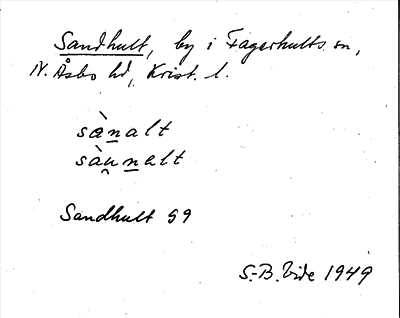 Sandhult, by i Fagerhults sn,
N. Åsbo hd, Krist. l.
sànalt
sàu̯nalt
Sandhult 59
S.-B. Vide 1949